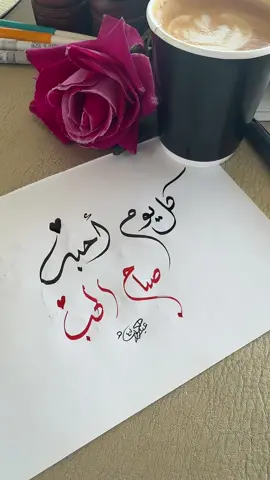 كل يوم أحبك
صباح الحب